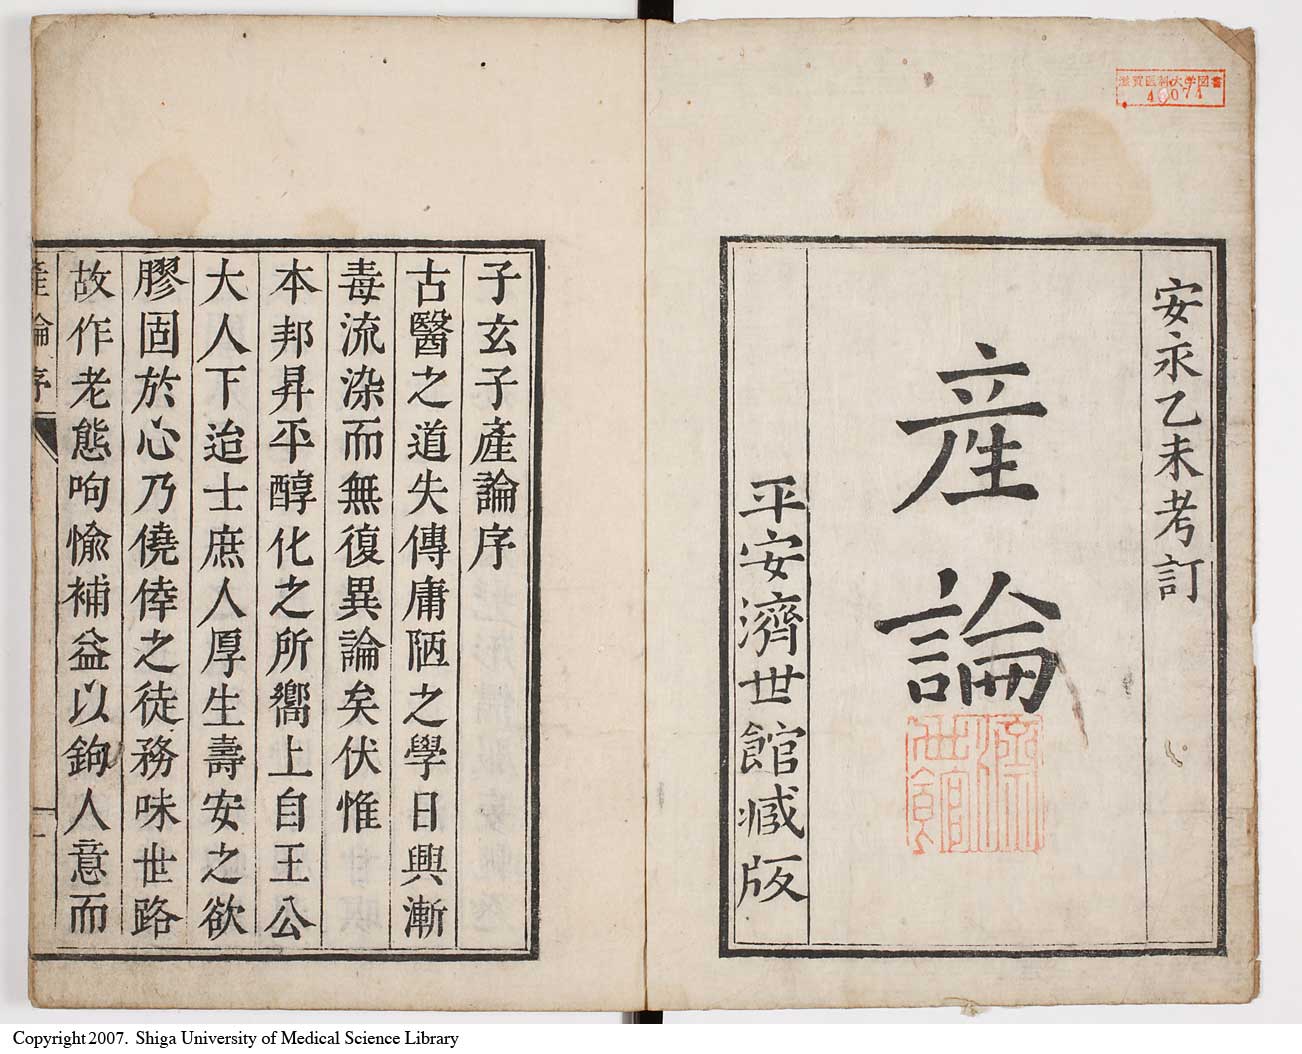 滋賀医科大学図書
安永乙未考訂
産論
平安濟世館臧版
濟世館
子玄子產論序
古醫之道失傳庸陋之學日興漸
毒流染而無復異論矣伏惟
本邦昇平醇化之所嚮上自王公
大人下迨士庶人厚生壽安之欲
膠固於心乃僥倖之徒務味世路
故作老態呴愉補益以鉤人意而
產論序
一
Copyright 2007. Shiga University of Medical Science Library